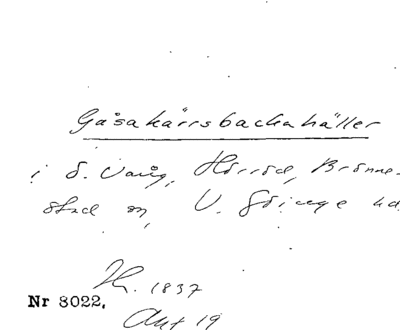 Gåsakärrsbackahäller
i Ö. Vång, Hörröd, Brönne-
stad sn, V. Göinge hd.
H. 1837
Nr 8022.
Akt 19